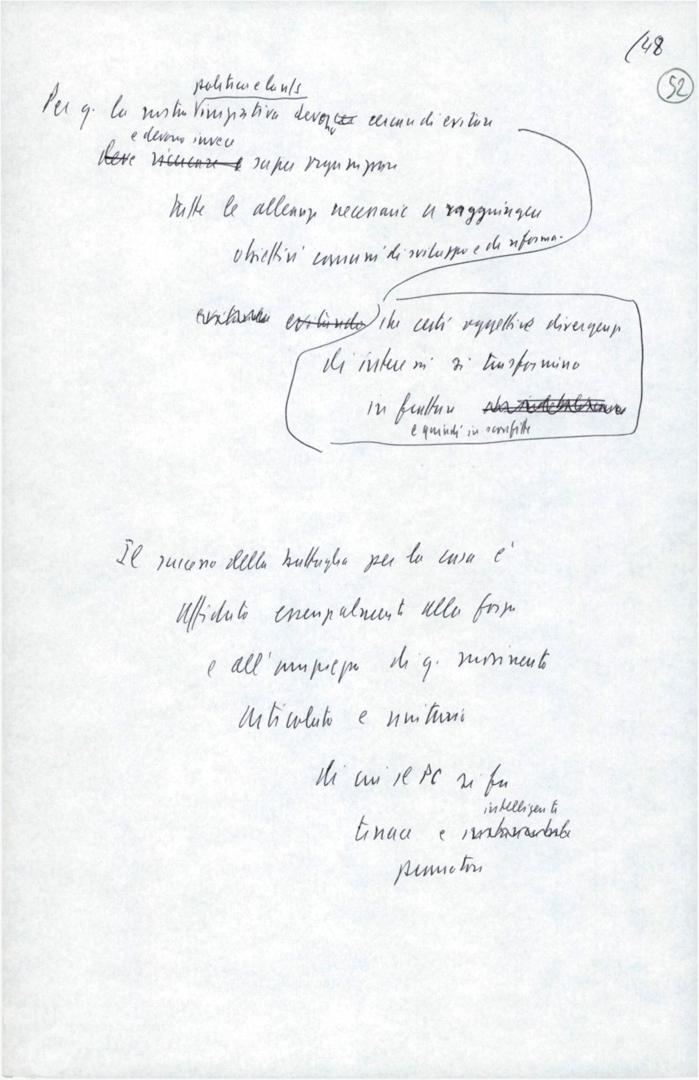 /48
52
politica e la n/s
Per q. la nostra iniziativa devono cercare di evitare
e devono invece
deve saper organizzare
tutte le alleanze necessarie a raggiungere
obiettivi comuni di sviluppo e di riforma.
evitando evitando che certe oggettive divergenze
di interessi si trasformino
in fratture
e quindi in sconfitte
Il successo della battaglia per la casa è
affidato essenzialmente alla forza
e all'ampiezza di q. movimento
articolato e unitario
di cui il PC si fa
intelligente
tenace e
promotore